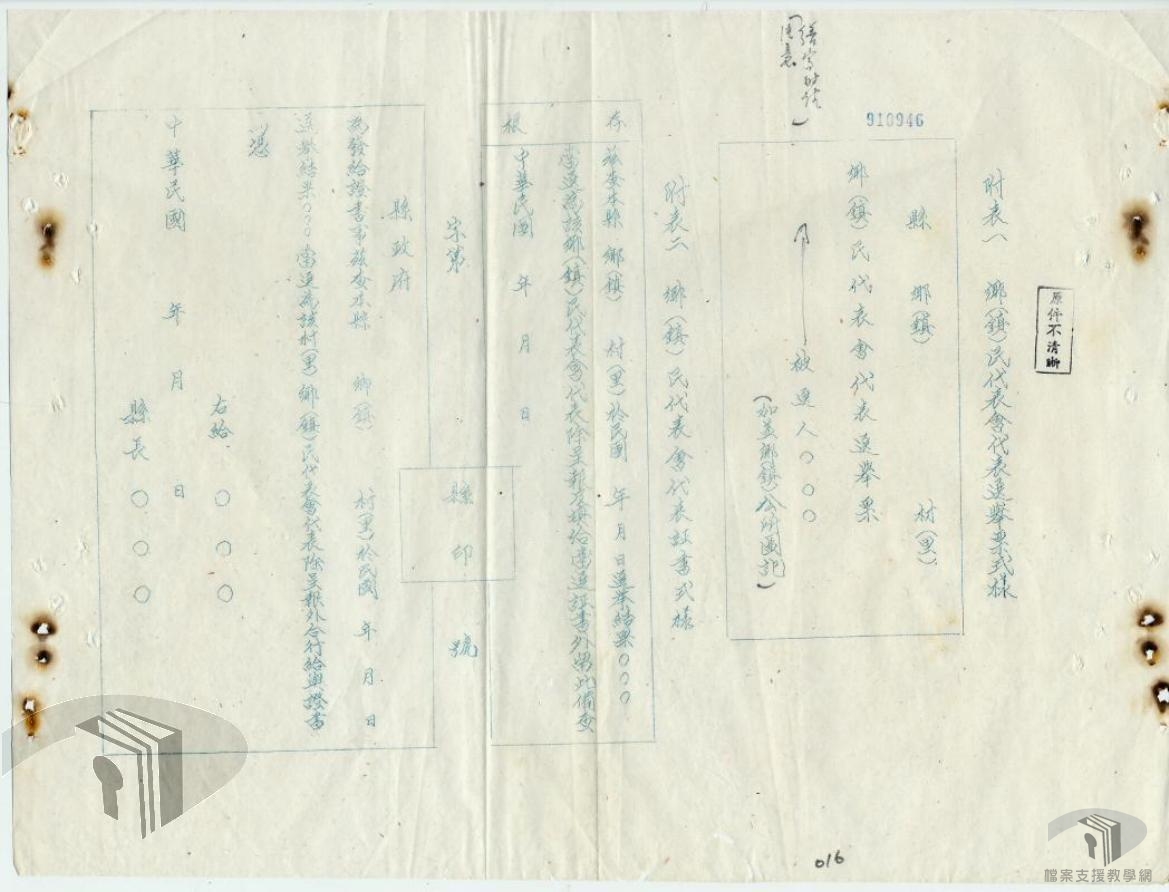 原件不清晰
附表一　鄉(鎮)民代表會代表選舉票式樣
910946
縣　鄉(鎮)　村(里)
鄉(鎮)民代表會代表選舉票
被選人○○○
(如蓋鄉(鎮)公所圖記)
附表二　鄉(鎮)民代表會代表証書式樣
存根
茲查本縣　鄉(鎮)　村(里)於民國　年　月　日選舉結果○○○
當選為該鄉(鎮)民代表會代表除呈報及填给當選證書外留此備查
中華民國　年　月　日
字第　號
縣印
縣政府
為發給證書事茲查本縣　鄉(鎮)　村(里)於民國　年　月　日
選舉結果○○○當選為該村(里)鄉(鎮)民代表會代表除呈報外合行給與證書
憑
右給　○○○
縣長　○○○
中華民國　年　月　日
016
檔案支援教學網